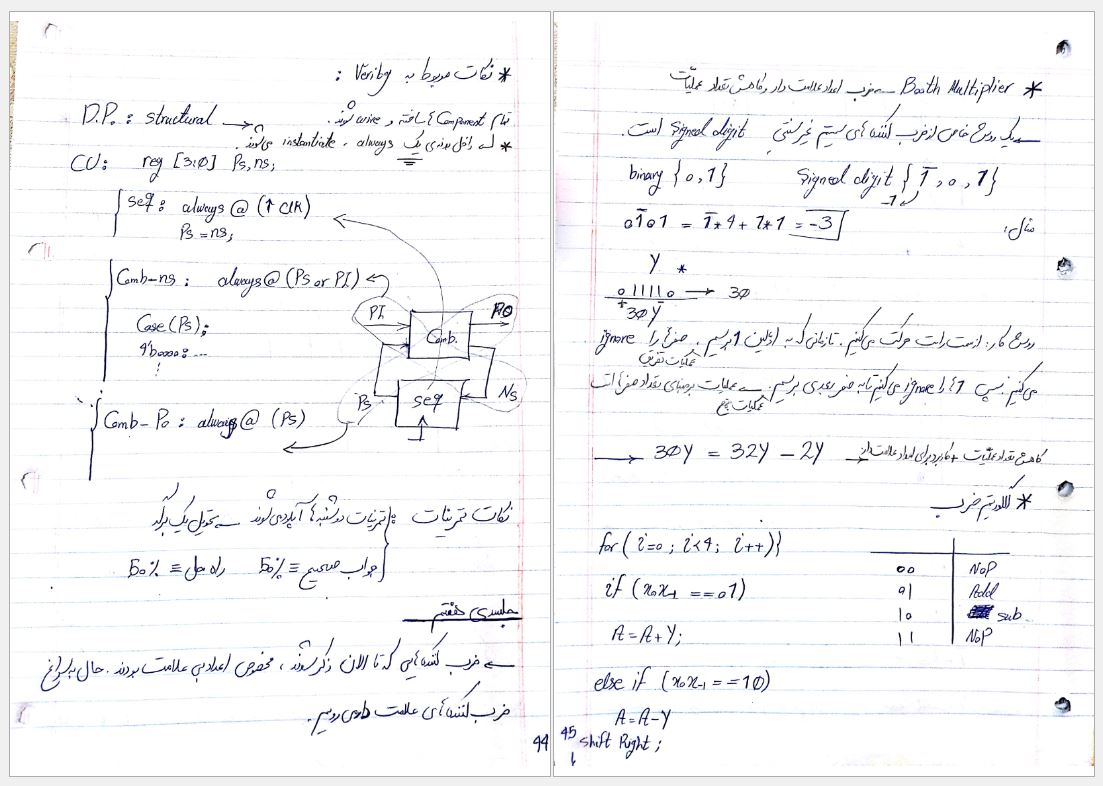 * نکات مربوط به Verilog :
D.P. : structural → تمام Component ها ساخته و wire شوند.
* داخل بدنه‌ی یک always ، instantiate نمی‌شوند.
CU: reg [3:0] Ps,ns;
seq : always @ (↑ clk)
Ps = ns;
Comb-ns : always @ (Ps or PI)
Case (Ps);
4'b0000 : ...
PI
Comb.
PO
Ps
seq
Ns
Comb-Po : always @ (Ps)
نکات تمرینات : تمرینات دوشنبه‌ها آپلود می‌شوند → تحویل یک
جواب صحیح ≡ 50% راه حل ≡ 50%
جلسه‌ی هفتم
← ضرب کننده‌هایی که تا الان ذکر شوند ، مخصوص اعداد بی علامت بودند. حال به سراغ
ضرب کننده‌های علامت دار می‌رویم.
44
* Booth Multiplier → ضرب اعداد علامت دار و کاهش تعداد عملیات
← یک روش خاص از ضرب کننده‌های سیستم غیرسنتی signed digit است.
binary {0,1} Signed digit {1̅,0,1}
-1
مثال:
01̅01 = 1̅*4 + 1*1 = -3
Y *
011110 → 30
+ −
30Y
روش کار: از سمت راست حرکت می‌کنیم. تا زمانی که به اولین 1 برسیم، صفرها را ignore
عملیات تفریق
می‌کنیم. سپس 1 ها را ignore می‌کنیم تا به صفر بعدی برسیم. → عملیات بر مبنای تعداد صفرها است
عملیات جمع
کاهش تعداد عملیات + کاربرد برای اعداد علامت دار → 30Y = 32Y − 2Y
* الگوریتم ضرب
for (i=0 ; i<4 ; i++){
if (x₀x₋₁ == 01)
A = A+Y;
else if (x₀x₋₁ == 10)
A = A-Y
shift Right ;
00 NOP
01 Add
10 sub
11 NOP
45